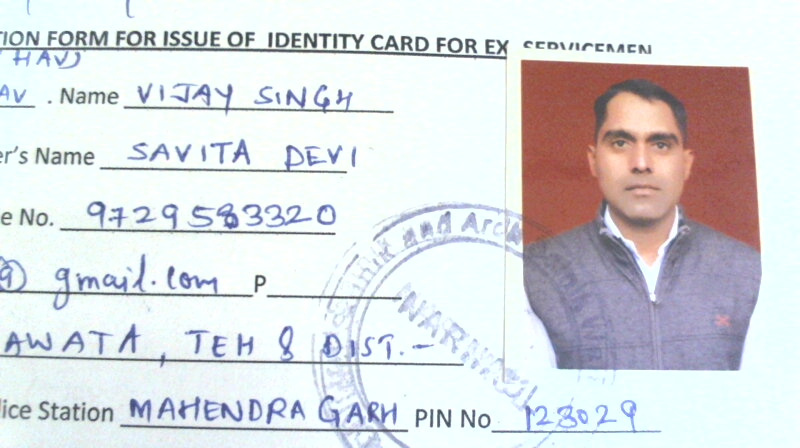 TION FORM FOR ISSUE OF IDENTITY CARD FOR EX SERVICEMEN
HAV)
AV . Name VIJAY SINGH
er's Name SAVITA DEVI
e No. 9729583320
@ gmail.com P
AWATA, TEH & DIST.-
and
lice Station MAHENDRA GARH PIN No 123029